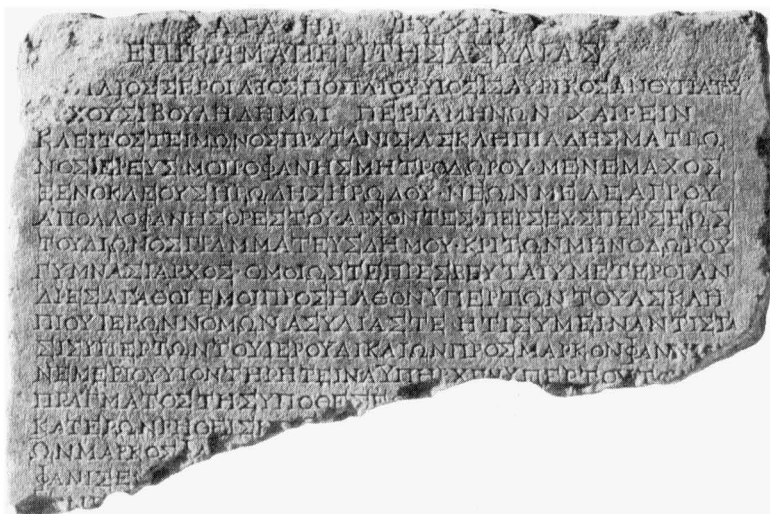 ΑΓΑΘΗΙ ΤΥΧΗΙ
ΕΠΙΚΡΙΜΑ ΠΕΡΙ ΤΗΣ ΑΣΥΛΙΑΣ
ΣΕΡΟΙΛΙΟΣ ΠΟΠΛΙΟΥ ΥΙΟΣ ΙΣΑΥΡΙΚΟΣ ΑΝΘΥΠΑΤΟΣ
ΒΟΥΛΗ ΔΗΜΩΙ ΠΕΡΓΑΜΗΝΩΝ ΧΑΙΡΕΙΝ
ΚΛΕΙΤΟΣ ΤΕΙΜΩΝΟΣ ΠΡΥΤΑΝΙΣ · ΑΣΚΛΗΠΙΑΔΗΣ ΜΑΤΡΩ
ΝΟΣ ΙΕΡΕΥΣ ΜΟΙΡΟΦΑΝΗΣ ΜΗΤΡΟΔΩΡΟΥ · ΜΕΝΕΜΑΧΟΣ
ΞΕΝΟΚΛΕΟΥΣ ΗΡΩΔΗΣ ΗΡΩΔΟΥ · ΝΕΩΝ ΜΕΛΕΑΓΡΟΥ
ΑΠΟΛΛΟΦΑΝΗΣ ΟΡΕΣΤΟΥ · ΑΡΧΟΝΤΕΣ · ΠΕΡΣΕΥΣ ΠΕΡΣΕΩΣ
ΤΟΥ ΔΙΩΝΟΣ ΓΡΑΜΜΑΤΕΥΣ ΔΗΜΟΥ · ΚΡΙΤΩΝ ΜΗΝΟΔΩΡΟΥ
ΓΥΜΝΑΣΙΑΡΧΟΣ · ΟΜΟΙΩΣ ΤΕ ΠΡΕΣΒΕΥΤΑΙ ΥΜΕΤΕΡΟΙ ΑΝ
ΔΡΕΣ ΑΓΑΘΟΙ ΕΜΟΙ ΠΡΟΣΗΛΘΟΝ ΥΠΕΡ ΤΩΝ ΤΟΥ ΑΣΚΛΗ
ΠΙΟΥ ΙΕΡΩΝ ΝΟΜΩΝ ΑΣΥΛΙΑΣ ΤΕ
ΣΙΣ ΥΠΕΡ ΤΩΝ ΤΟΥ ΙΕΡΟΥ ΔΙΚΑΙΩΝ ΠΡΟΣ ΜΑΡΚΟΝ ΦΑΝΝΙ
ΝΕΜΕΡΙΟΥ ΥΙΟΝ ΤΗΡΗΤΕΙΝΑ ΥΠΗΡΧΕΝ ΥΠΕΡ ΤΟΥ
ΠΡΑΓΜΑΤΟΣ ΤΗΣ ΥΠΟΘΕΣΕ
ΚΑΤΕΡΩΝ ΡΗΘΕΙΣ
ΩΝ ΜΑΡΚΟΣ
ΦΑΝΙΣΕ